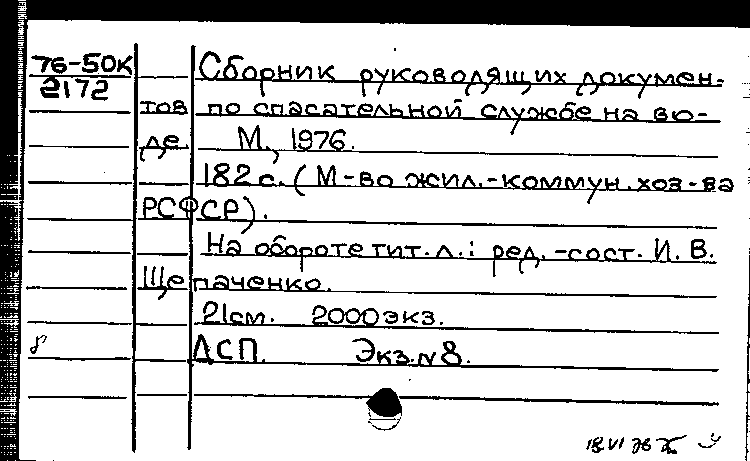 76-50К Сборник руководящих докумен-
2172
тов по спасательной службе на во-
де М., 1976.
182 с. (М-во жил.-коммун. хоз-ва
РСФСР).
На обороте тит. л.: ред.-сост. И. В.
Щепаченко.
21см. 2000экз.
8 ДСП. Экз.№8.
18 VI 76